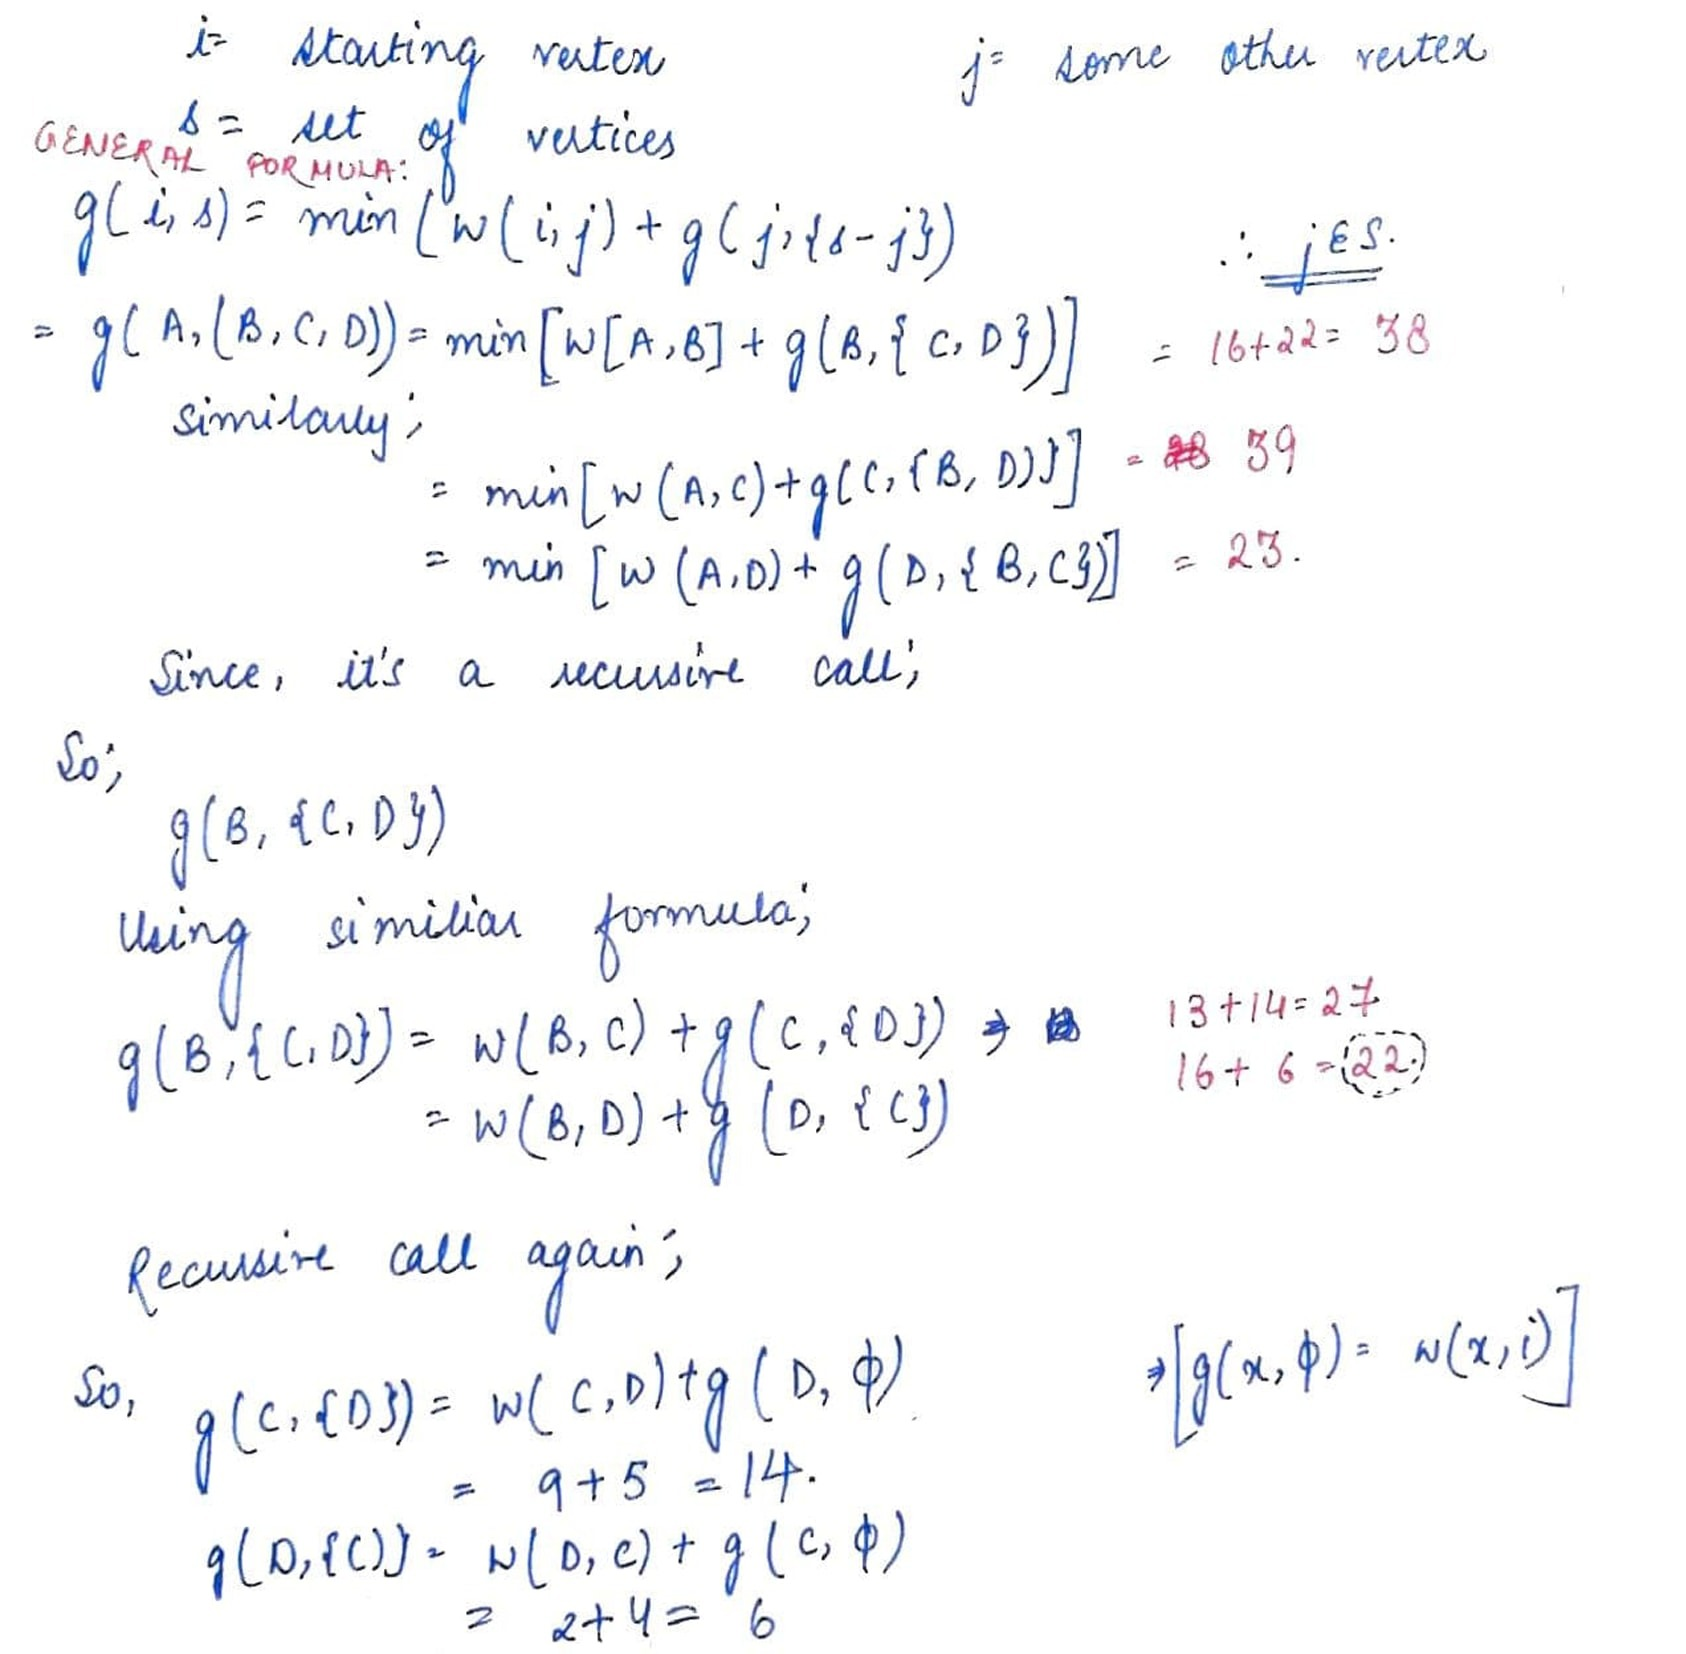 i= starting vertex j= some other vertex
s= set of vertices
GENERAL FORMULA:
g(i, s) = min (w(i, j) + g(j, {s-j}) ∴ j∈S.
= g(A, (B, C, D)) = min [W[A, B] + g(B, {C, D})] = 16+22= 38
Similarly;
= min [w(A, C) + g(C, {B, D)}] = 39
= min [w(A, D) + g(D, {B, C})] = 23.
Since, it's a recursive call;
So;
g(B, {C, D})
Using similiar formula;
g(B, {C, D}) = w(B, C) + g(C, {D}) ⇒ 13+14=27
= w(B, D) + g(D, {C}) 16+ 6 = 22.
Recursive call again;
So, g(C, {D}) = w(C, D) + g(D, ϕ) ⇒ [g(x, ϕ) = w(x, i)]
= 9+5 = 14.
g(D, {C)} = w(D, C) + g(C, ϕ)
= 2+4 = 6